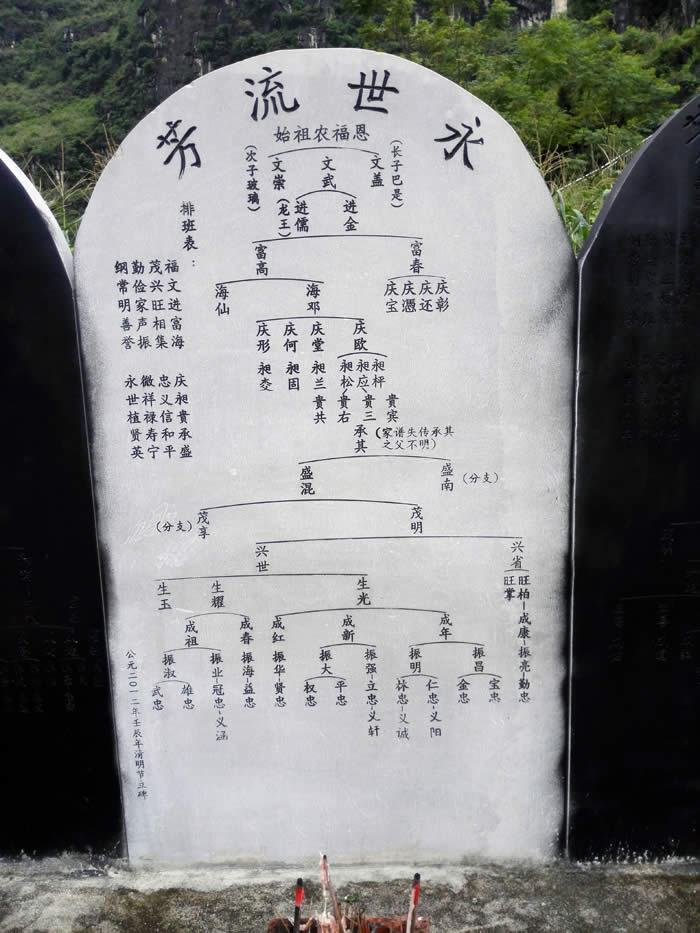 永世流芳
始祖农福恩
(长子巴是)
文盖
文武
文崇
(次子玻璃)
进金
进儒
(龙王)
排班表：
福文进富海
茂兴旺相集
勤俭家声振
纲常明善誉
庆昶貴承盛
忠义信和平
微祥禄寿宁
永世植贤英
富春
富高
庆彰
庆还
庆憑
庆宝
海邓
海仙
庆欧
庆堂
庆何
庆形
昶枰
昶应
昶松
昶兰
昶固
貴宾
貴三
貴右
貴共
承其
(家谱失传承其之父不明)
盛南
(分支)
盛混
茂明
茂享
(分支)
兴省
兴世
旺柏-成康-振亮-勤忠
旺掌
生光
生耀
生玉
成年
成新
成红
成春
成祖
振昌
振明
振强-立忠-义轩
振大
振华-贤忠
振海-益忠
振业-冠忠-义涵
振淑
宝忠
金忠
仁忠-义阳
林忠-义诚
平忠
权忠
雄忠
武忠
公元二0一二年壬辰年清明节立碑